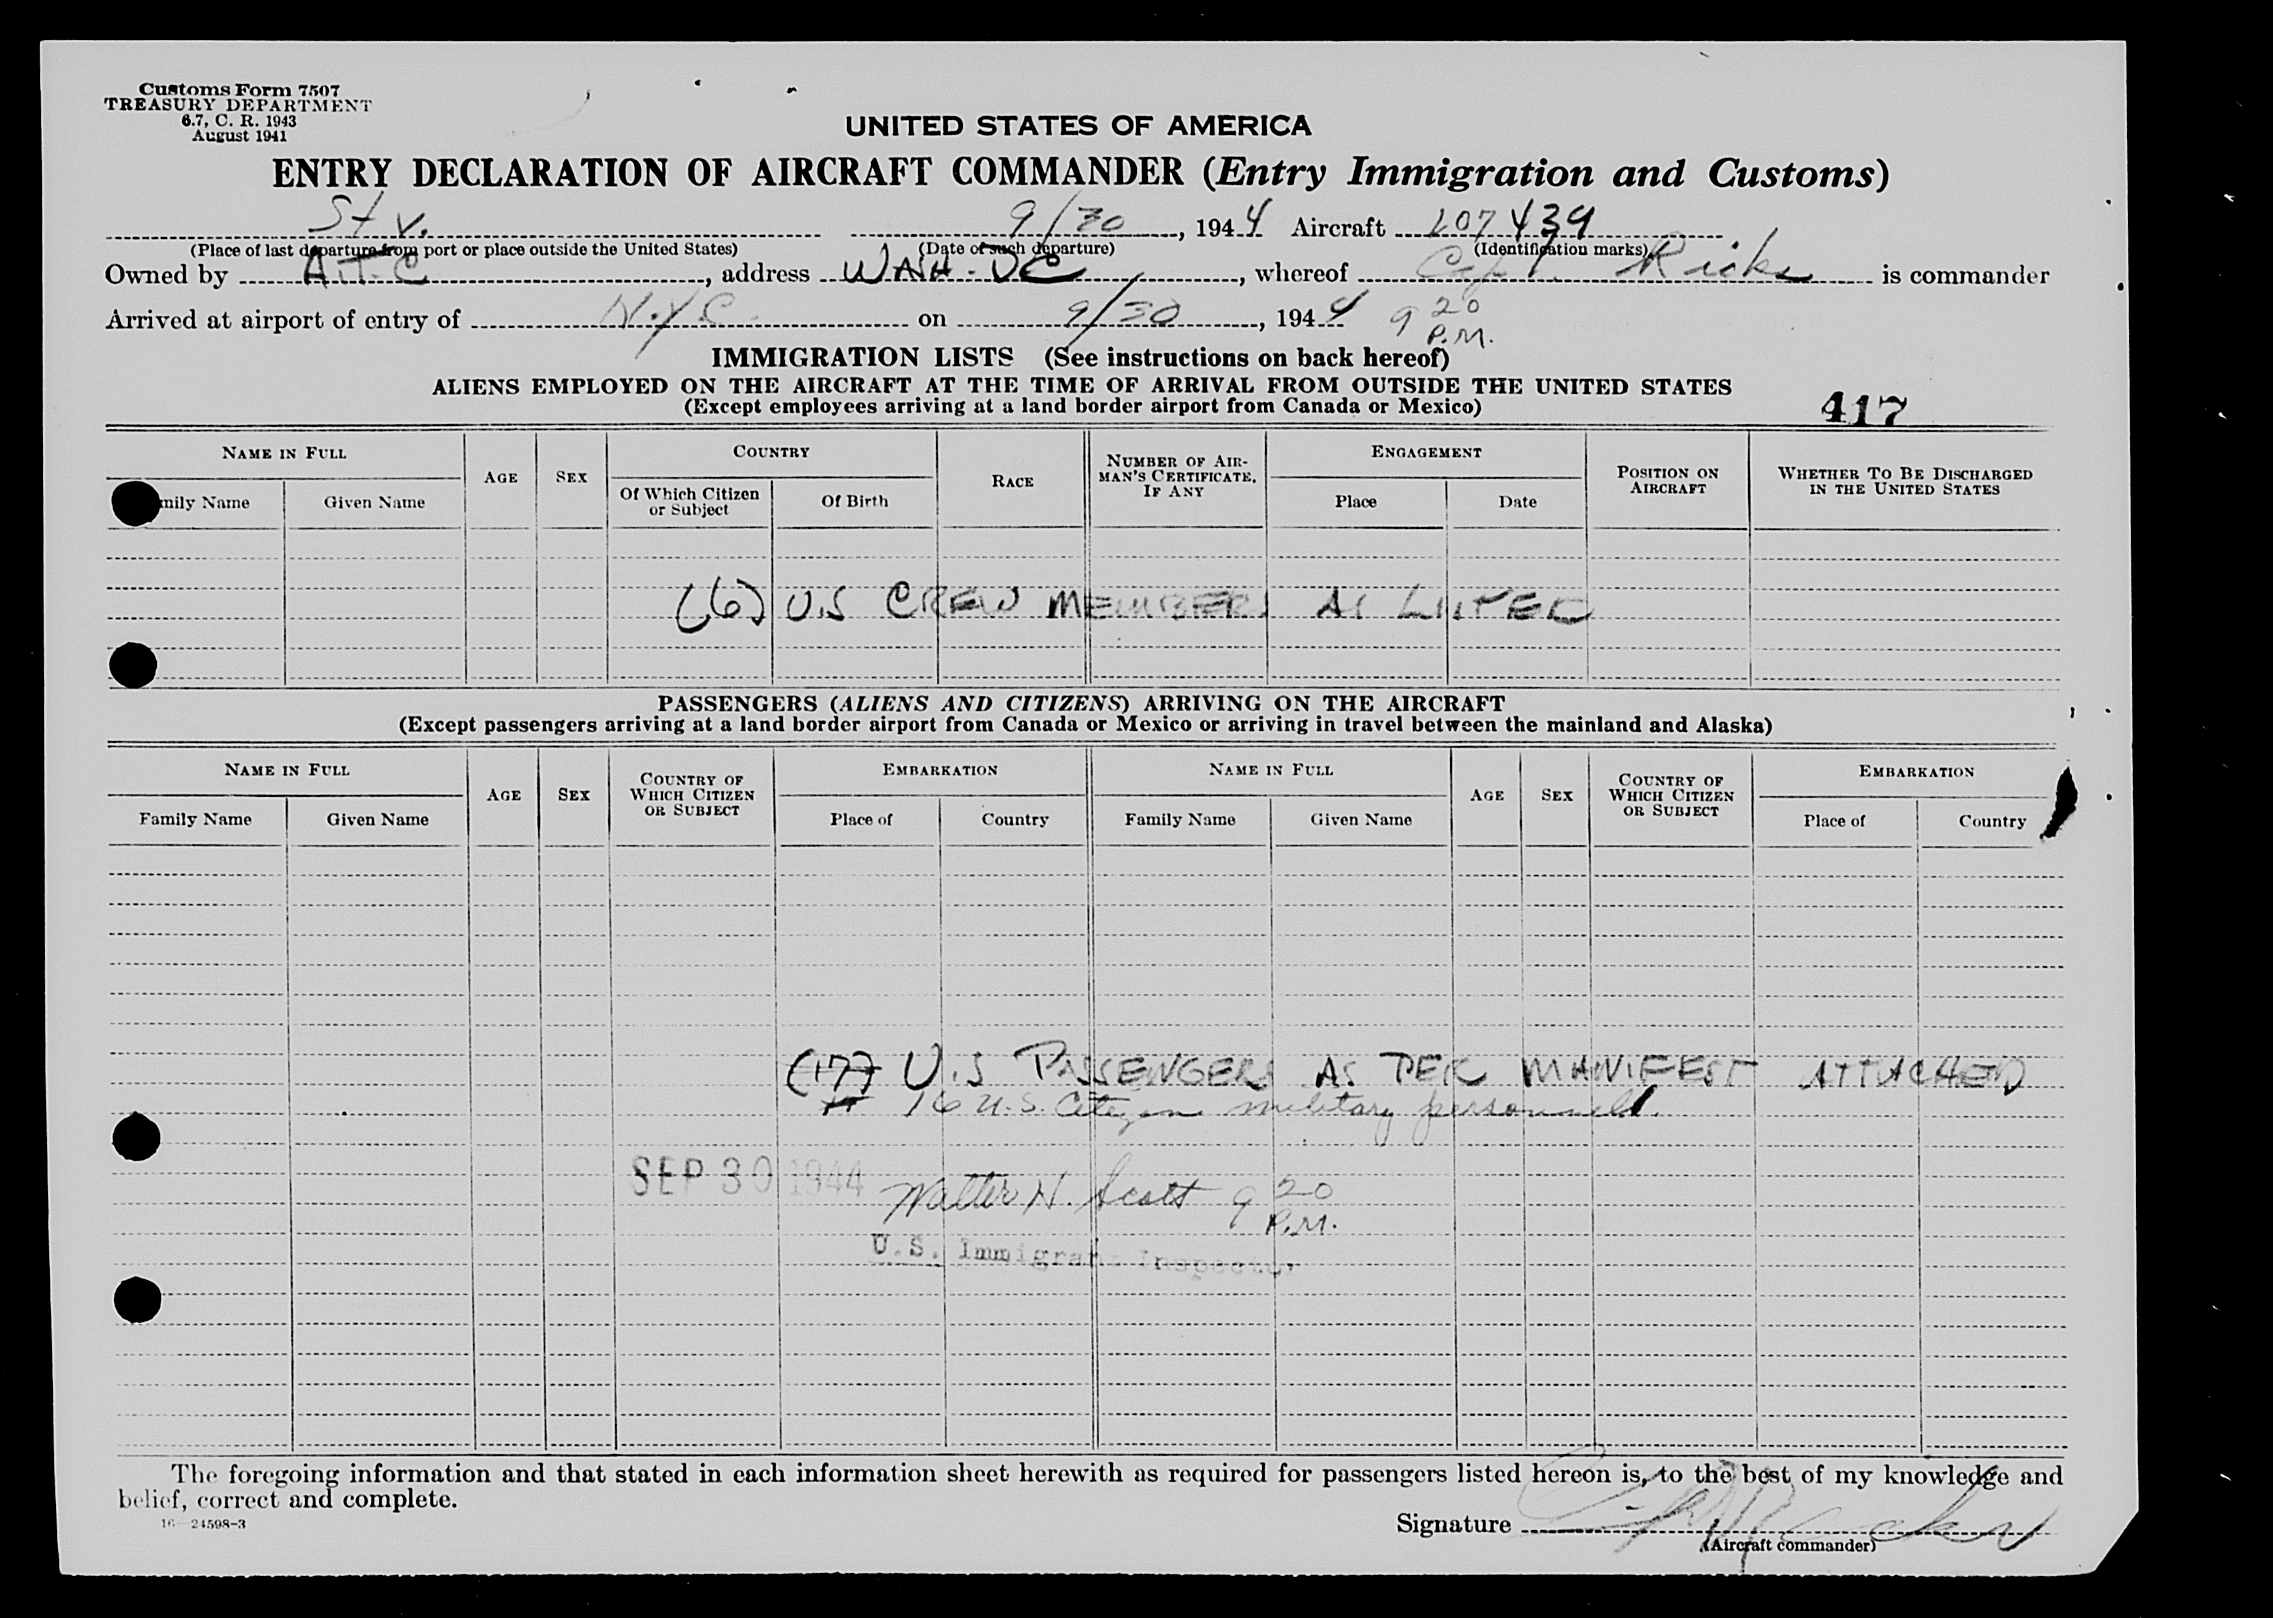 Customs Form 7507
TREASURY DEPARTMENT
6.7, C. R. 1943
August 1941
UNITED STATES OF AMERICA
ENTRY DECLARATION OF AIRCRAFT COMMANDER (Entry Immigration and Customs)
St V. 9/30, 1944 Aircraft 107439
(Place of last departure from port or place outside the United States) (Date of such departure) (Identification marks)
Owned by A.T.C, address WASH-DC, whereof Capt. Ricks is commander
Arrived at airport of entry of N.Y.C. on 9/30, 1944 9 20 P.M.
IMMIGRATION LISTS (See instructions on back hereof)
ALIENS EMPLOYED ON THE AIRCRAFT AT THE TIME OF ARRIVAL FROM OUTSIDE THE UNITED STATES
(Except employees arriving at a land border airport from Canada or Mexico)
417
NAME IN FULL AGE SEX COUNTRY RACE NUMBER OF AIRMAN'S CERTIFICATE, IF ANY ENGAGEMENT POSITION ON AIRCRAFT WHETHER TO BE DISCHARGED IN THE UNITED STATES
mily Name Given Name Of Which Citizen or Subject Of Birth Place Date
(6) U.S CREW MEMBERS AS LISTED
PASSENGERS (ALIENS AND CITIZENS) ARRIVING ON THE AIRCRAFT
(Except passengers arriving at a land border airport from Canada or Mexico or arriving in travel between the mainland and Alaska)
NAME IN FULL AGE SEX COUNTRY OF WHICH CITIZEN OR SUBJECT EMBARKATION NAME IN FULL AGE SEX COUNTRY OF WHICH CITIZEN OR SUBJECT EMBARKATION
Family Name Given Name Place of Country Family Name Given Name Place of Country
(17) U.S PASSENGERS AS PER MANIFEST ATTACHED
16 U.S. Citizen military personnel.
SEP 30 1944
Walter H. Scott 9 20 P.M.
U.S. Immigrant Inspector
The foregoing information and that stated in each information sheet herewith as required for passengers listed hereon is, to the best of my knowledge and
belief, correct and complete.
16-24598-3
Signature
(Aircraft commander)